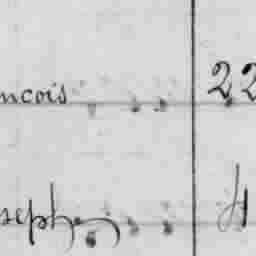 ncois . . . 22
seph . . .